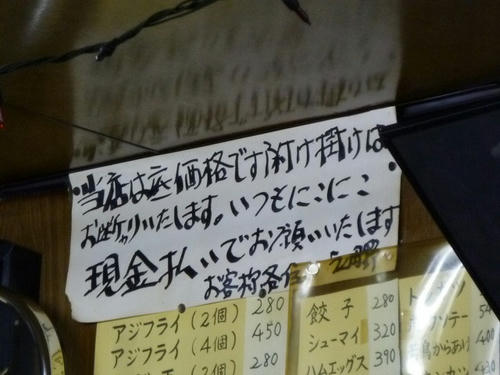 当店は底価格です附け掛けは
お断りいたします。いつもにこにこ
現金払いでお願いいたします
お客様各位
アジフライ(2個) 280
アジフライ(4個) 450
280
餃子 280
シューマイ 320
ハムエッグス 390